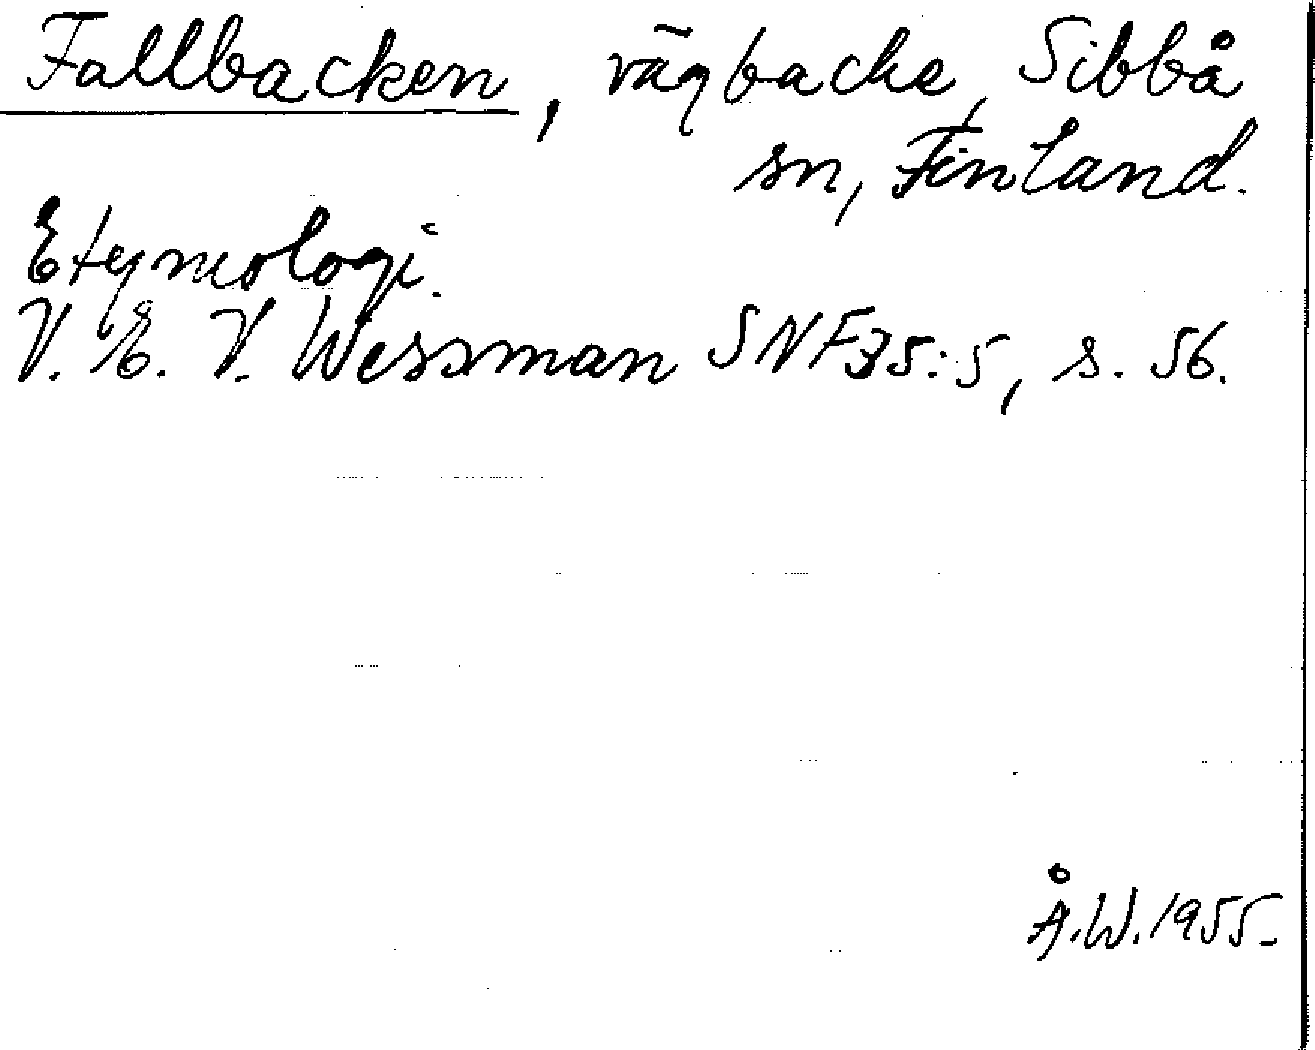 Fallbacken, vägbacke, Sibbå
sn, Finland.
Etymologi.
V. E. V. Wessman SNF 35:5, s. 56.
Å.W. 1955.